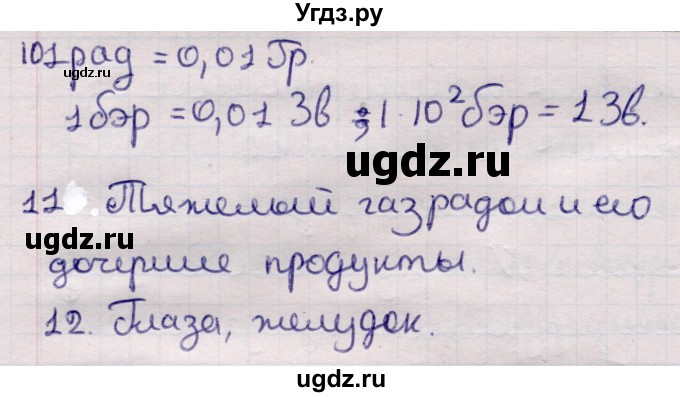 Угдз.ру
10 1 рад = 0,01 Гр.
1 бэр = 0,01 Зв ; 1·10² бэр = 1 Зв.
ugdz.ru
ugdz.ru
11. Тяжелый газ радон и его
ugdz.ru
дочерние продукты.
12. Глаза, желудок.
ugdz.ru
ugdz.ru